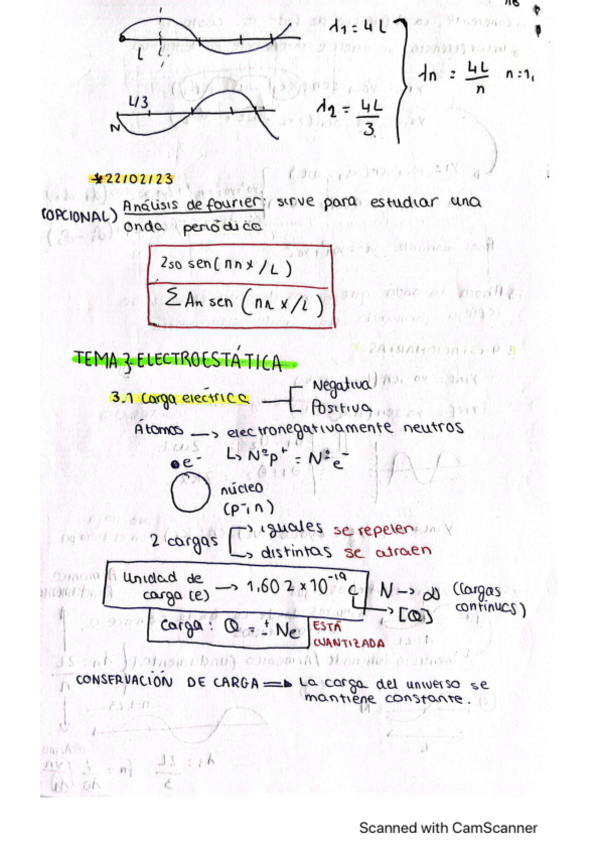 λ1 = 4L
L
λn = 4L/n n=1,
L/3
λ2 = 4L/3
N
*22/02/23
(OPCIONAL) Análisis de fourier: sirve para estudiar una
onda periódica
2so sen(nπx/L)
∑ An sen (nπx/L)
TEMA 3. ELECTROESTÁTICA
3.1 Carga eléctrica
Negativa
Positiva
Átomos → electronegativamente neutros
↳ Nº p+ = Nº e-
e-
núcleo
(p-, n)
2 cargas → iguales se repelen
→ distintas se atraen
Unidad de carga (e) → 1.602 x 10^-19 C
N → ∞ (Cargas continuas)
→ [Q]
Carga: Q = ± Ne
ESTÁ CUANTIZADA
CONSERVACIÓN DE CARGA ⇒ La carga del universo se
mantiene constante.
Scanned with CamScanner